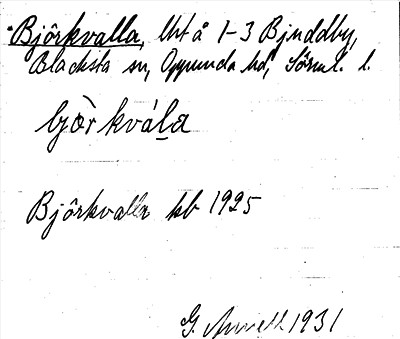 Björkvalla, lht å 1-3 Bjuddby,
Blacksta sn, Oppunda hd, Sörml. l.
bjö̀rkvála
Björkvalla kb 1925
G. 1931